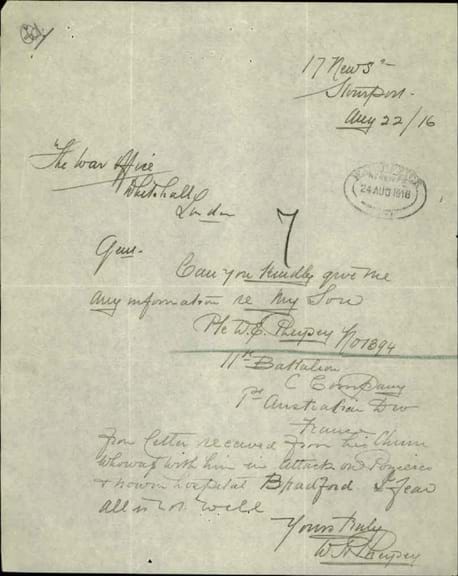 17 New St
Stourport
Aug 22/16
The War Office
Whitehall
London
WAR OFFICE
24 AUG 1916
7
Gen.
Can you kindly give me
any information re My Son
Pte W.E. No 1394
11th Battalion
C Company
1st Australian Div
France
From letter received from his Chum
who was with him in attack on Pozieres
& now in hospital Bradford I fear
all is not well
Yours truly